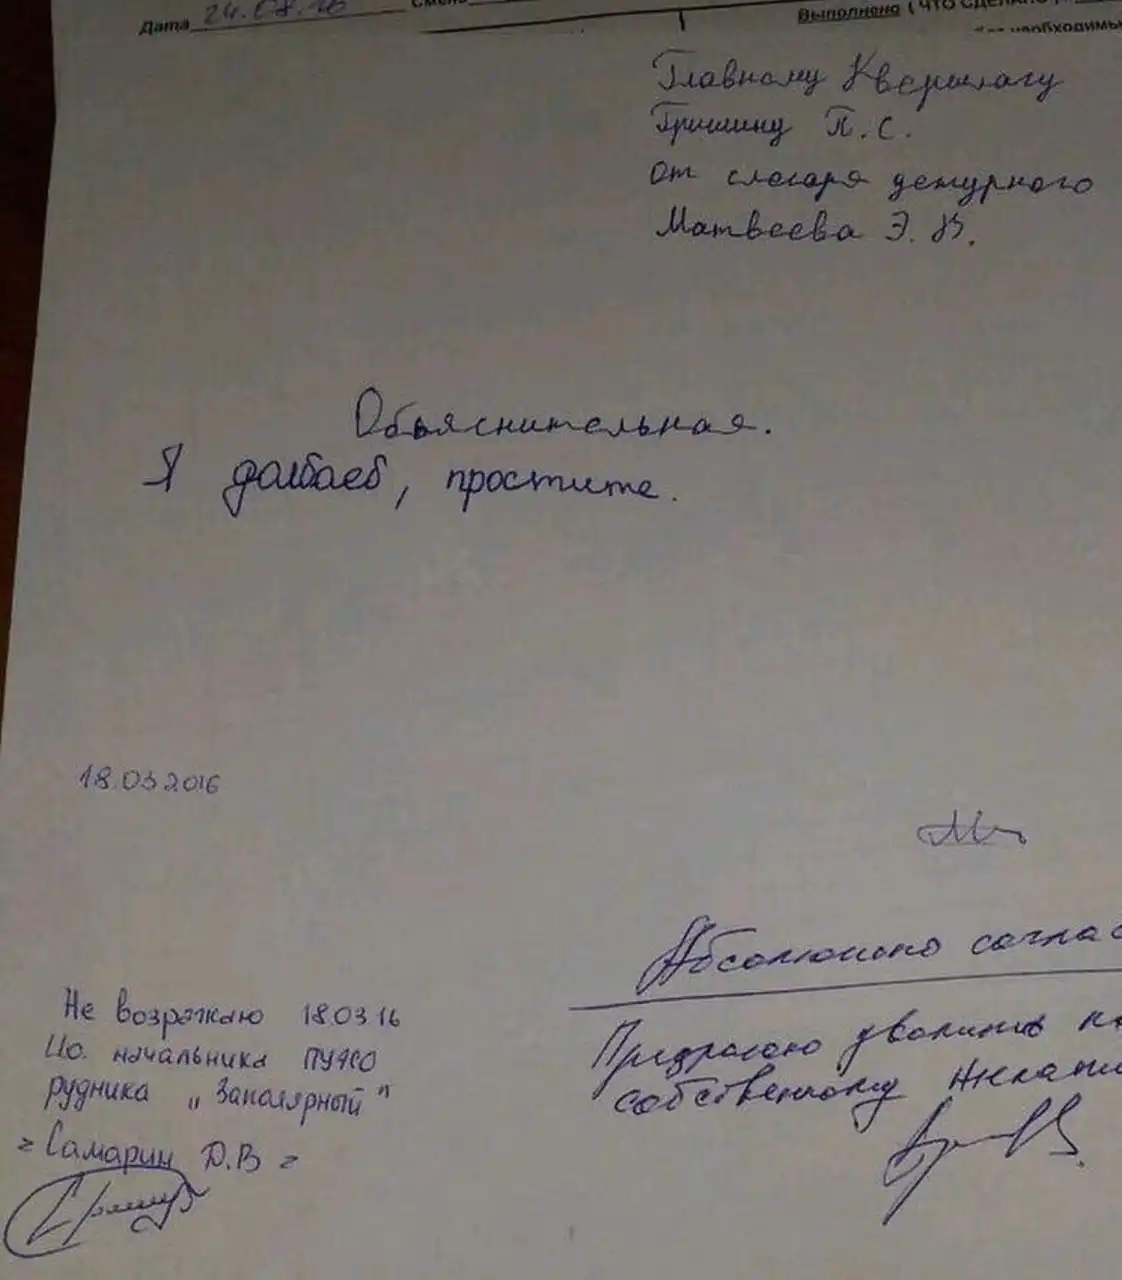 Дата 24.08.16
Выполнено (что сделано
необходимы
Главному Квершлагу
Гришину П.С.
от слесаря дежурного
Матвеева Э.В.
Объяснительная.
Я долбаеб, простите.
18.03.2016
Абсолютно соглас
Не возражаю 18.03.16
И.о. начальника
рудника "Заполярный"
=Самарин Д.В=
Предлагаю уволить по
собственному желани